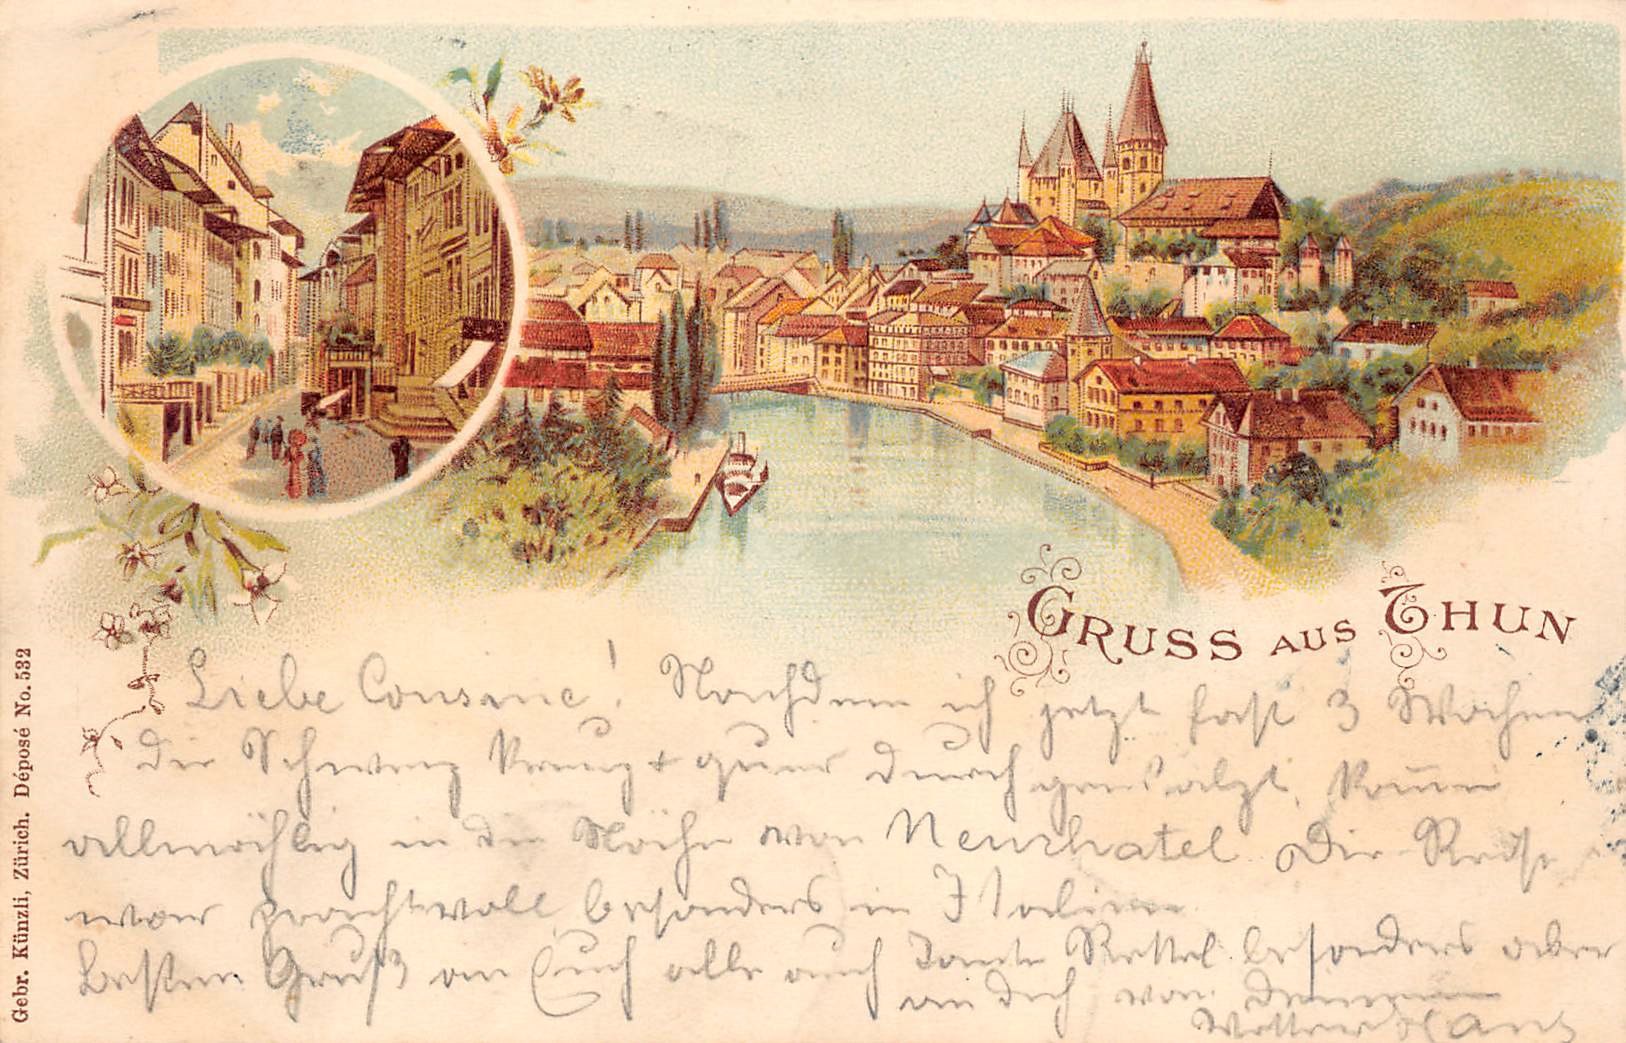 GRUSS AUS THUN
Liebe Cousine! Nachdem ich jetzt fast 3 Wochen
die Schweiz kreuz + quer durch gewalzt, komme
allmählig in die Nähe von Neuchatel. Die Reise
war prachtvoll besonders in Italien
Besten Gruß an Euch alle auch Tante besonders aber
an Dich von Deinem
Vetter Hans
Gebr. Künzli, Zürich. Déposé No. 532